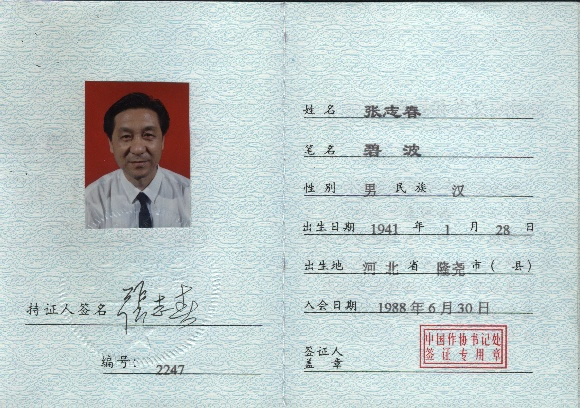 持证人签名 张志春
编号: 2247
姓名 张志春
笔名 碧波
性别 男 民族 汉
出生日期 1941 年 1 月 28 日
出生地 河北 省 隆尧 市(县)
入会日期 1988年6月30日
签证人
盖章
中国作协书记处
签证专用章